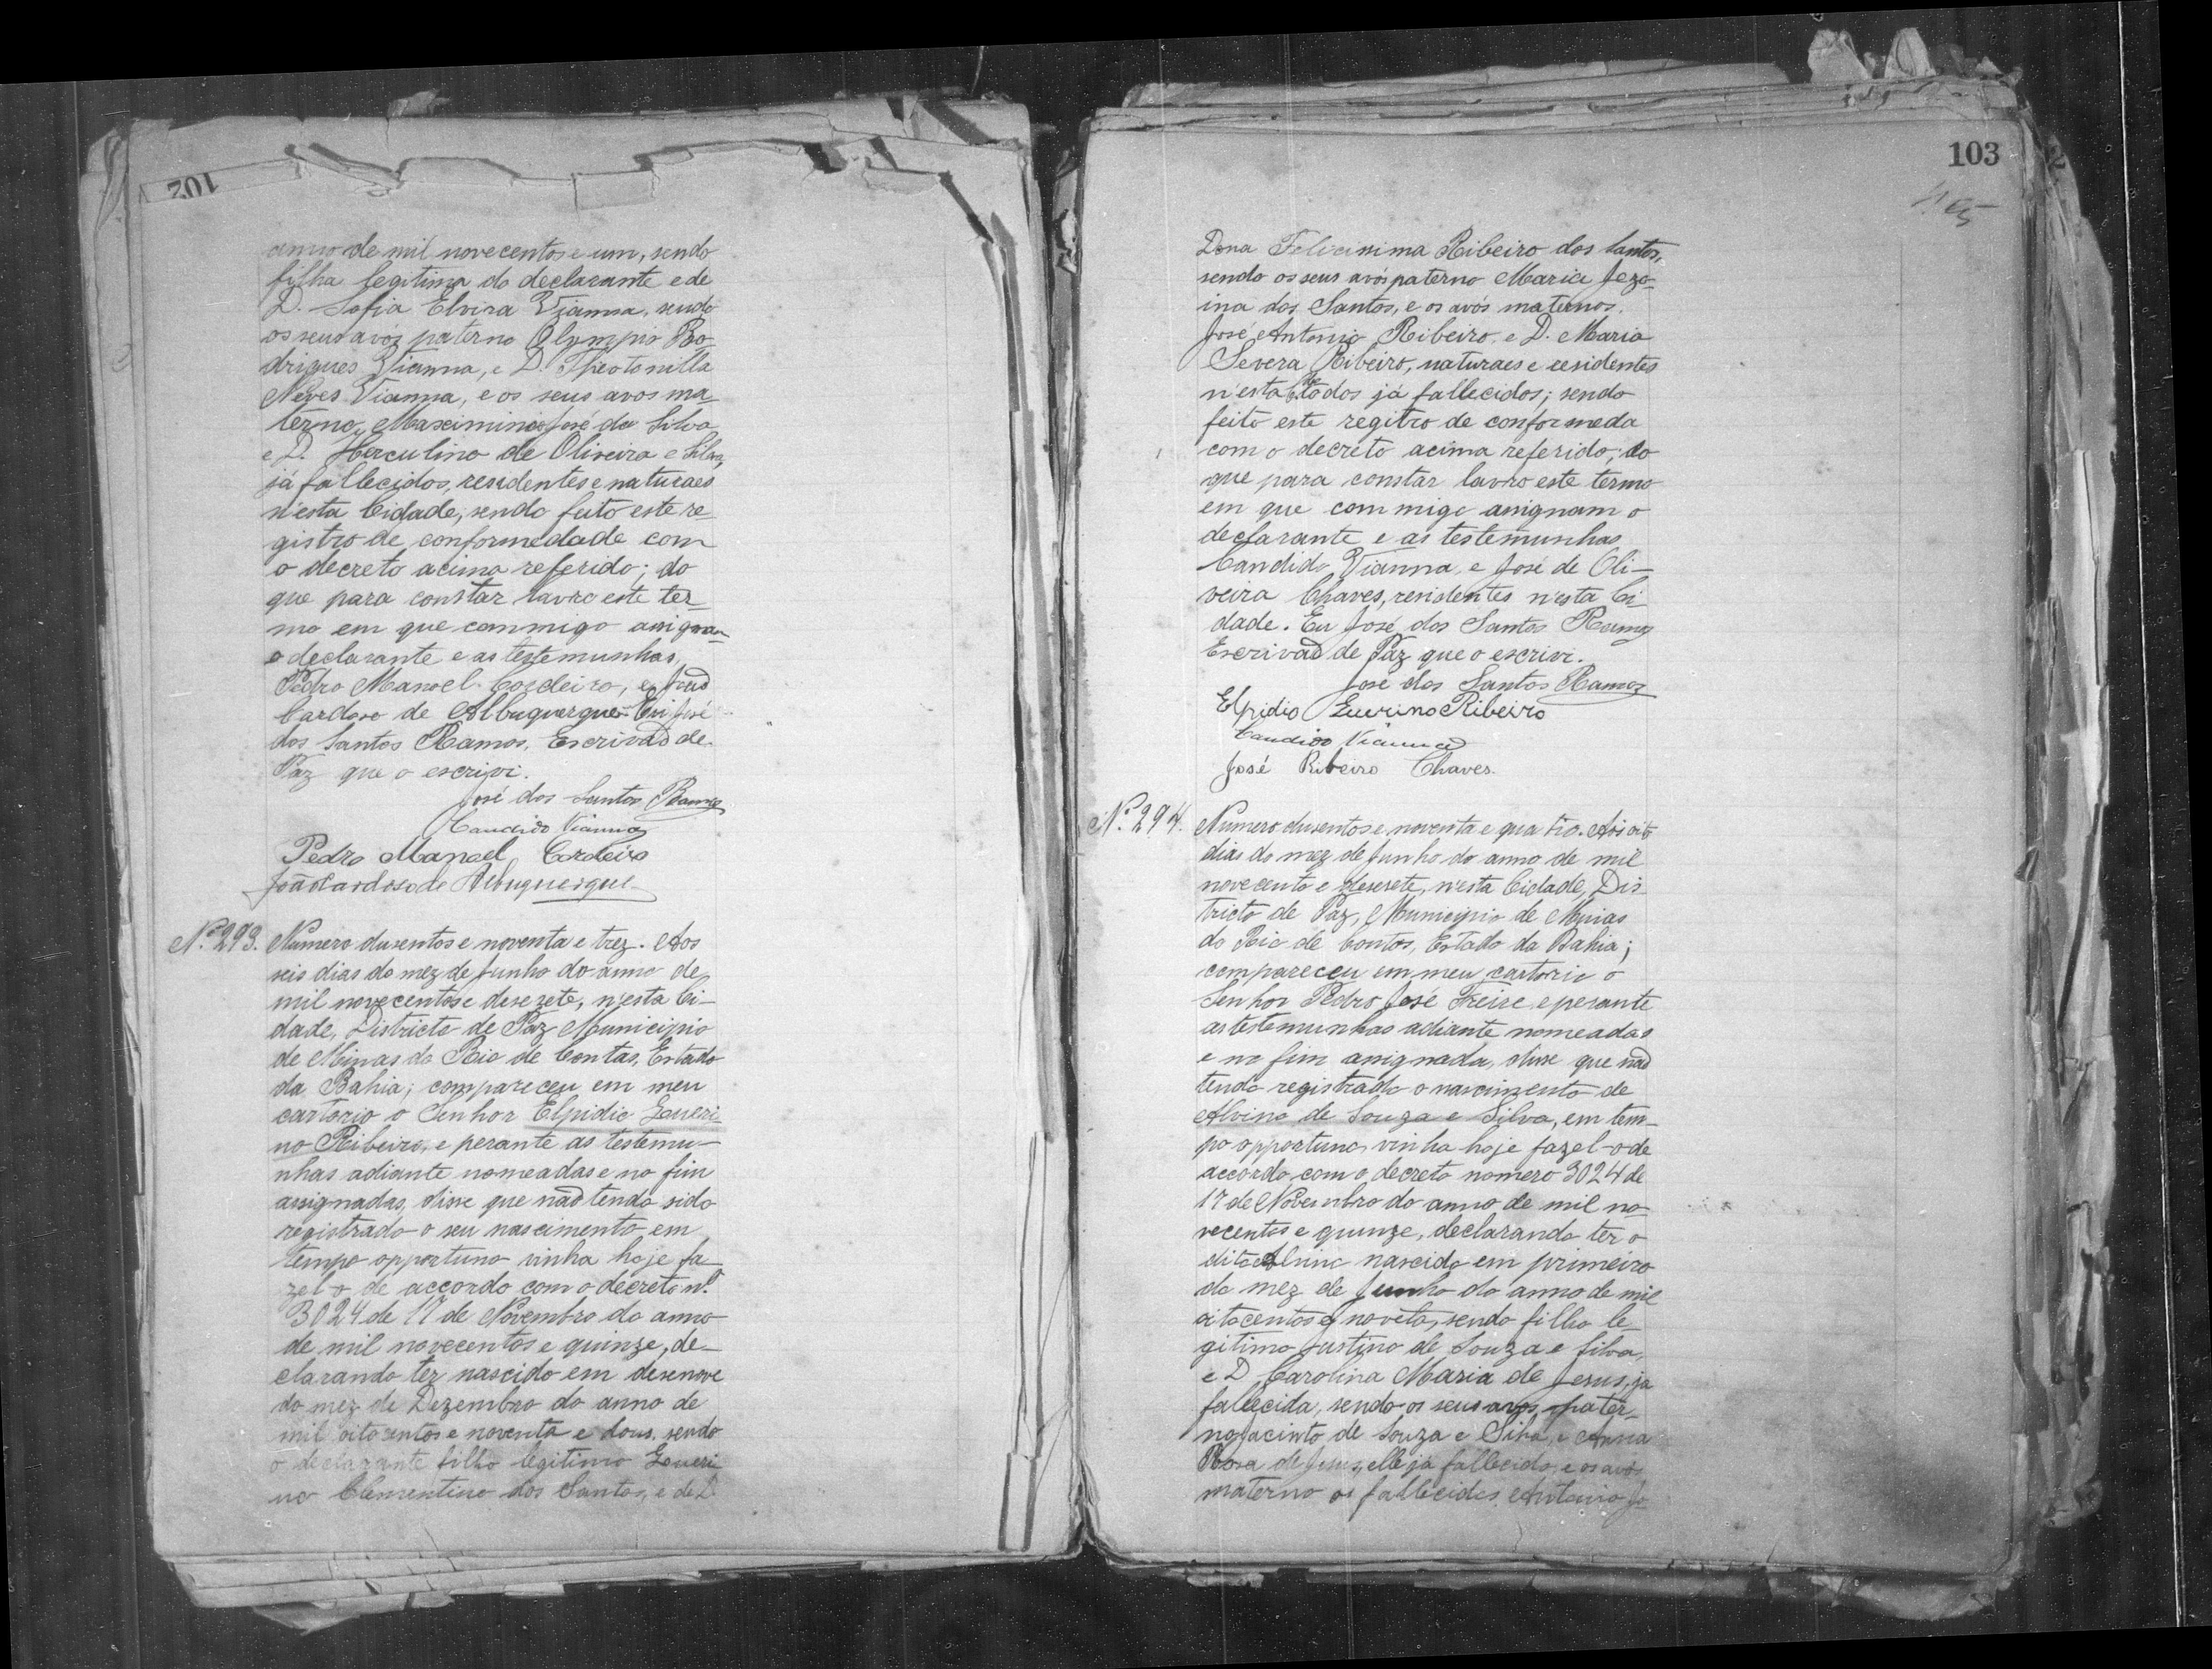 102
anno de mil novecentos e um, sendo
filha legitima do declarante e de
D. Sofia Elvira Vianna, sendo
os seus avós paterno Olympio Ro-
drigues Vianna, e D. Theotonilla
Neves Vianna, e os seus avos ma-
terno, Masciminio José da Silva
e D. Herculino de Oliveira e Silva,
já fallecidos, residentes e naturaes
n'esta Cidade, sendo feito este re-
gistro de conformedade com
o decreto acima referido; do
que para constar lavro este ter-
mo em que commigo assignam
o declarante e as testemunhas
Pedro Manoel Cordeiro, e João
Cardoso de Albuquerque. Eu José
dos Santos Ramos, Escrivaõ de
Paz que o escrivi.
José dos Santos Ramos
Candido Vianna
Pedro Manoel Cordeiro
João Cardoso de Albuquerque
Nº 293. Numero dusentos e noventa e trez. Aos
seis dias do mez de Junho do anno de
mil novecentos e desezete, n'esta Ci-
dade, Districto de Paz Municipio
de Minas do Rio de Contas, Estado
da Bahia; compareceu em meu
cartorio o Senhor Elpidio Zeueri-
no Ribeiro, e perante as testemu-
nhas adiante nomeadas e no fim
assignadas, disse que naõ tendo sido
registrado o seu nascimento em
tempo opportuno vinha hoje fa-
zel-o de accordo com o decreto nº
3024 de 17 de Novembro do anno
de mil novecentos e quinze, de-
clarando ter nascido em desenove
do mez de Dezembro do anno de
mil oitocentos e noventa e dous, sendo
o declarante filho legitimo Zeueri-
no Clementino dos Santos, e de D.
103
Dona Felicissima Ribeiro dos Santos,
sendo os seus avós paterno Maria Jezo-
ina dos Santos, e os avós maternos
José Antonio Ribeiro, e D. Maria
Severa Ribeiro, naturaes e residentes
n'esta todos já fallecidos; sendo
feito este regitro de conformeda
com o decreto acima referido; do
que para constar lavro este termo
em que commigo assignam o
declarante e as testemunhas
Candido Vianna, e José de Oli-
veira Chaves, residentes n'esta Ci-
dade. Eu José dos Santos Ramos
Escrivaõ de Paz que o escrivi.
José dos Santos Ramos
Elpidio Zuerino Ribeiro
Candido Vianna
José Ribeiro Chaves.
Nº 294. Numero dusentos e noventa e quatro. Aos oito
dias do mez de Junho do anno de mil
novecento e desesete, n'esta Cidade, Dis-
tricto de Paz, Municipio de Minas
do Rio de Contos, Estado da Bahia;
compareceu em meu cartorio o
Senhor Pedro José Freire e perante
as testemunhas adiante nomeadas
e no fim assignada, disse que naõ
tendo registrado o nascimento de
Alvino de Souza e Silva, em tem-
po opportuno, vinha hoje fazel-o de
accordo com o decreto nomero 3024 de
17 de Novembro do anno de mil no-
vecentos e quinze, declarando ter o
dito Alvino nascido em primeiro
do mez de Junho do anno de mil
oitocentos e noveta, sendo filho le-
gitimo Justino de Souza e Silva,
e D. Carolina Maria de Jesus, ja
fallecida, sendo os seus avos pater-
no Jacinto de Souza e Silva, e Anna
Rosa de Jesus, elle já fallecido, e os avós
materno os fallecidos Antonio Jo-